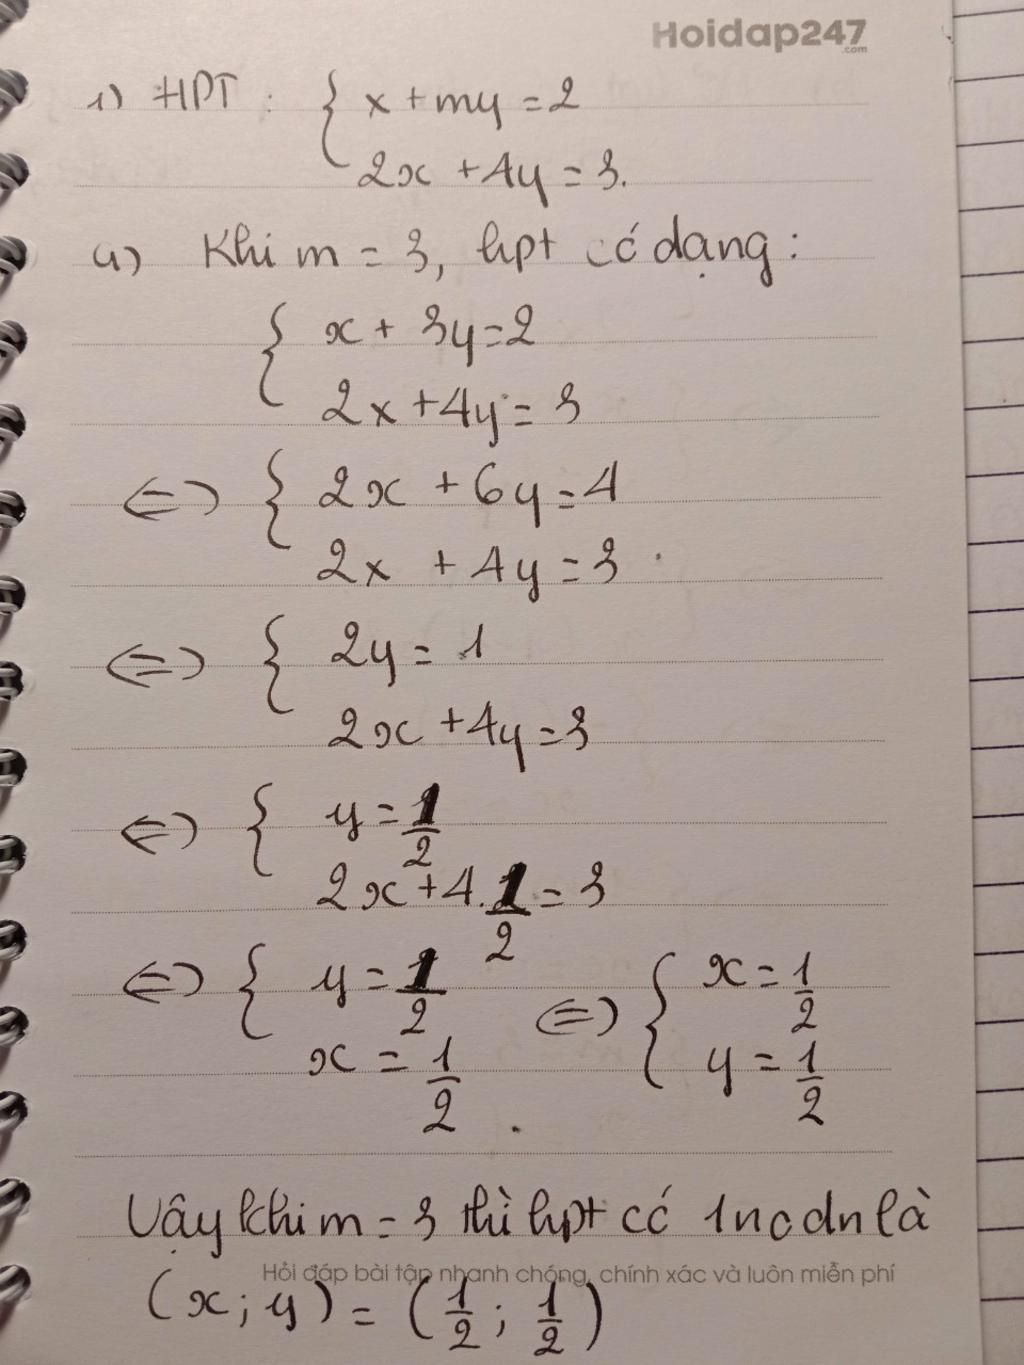 Hoidap247
.com
1) HPT : { x + my = 2
2x + 4y = 3.
a) Khi m = 3, hpt có dạng :
{ x + 3y = 2
2x + 4y = 3
<=> { 2x + 6y = 4
2x + 4y = 3
<=> { 2y = 1
2x + 4y = 3
<=> { y = 1/2
2x + 4. 1/2 = 3
<=> { y = 1/2 <=> { x = 1/2
x = 1/2 y = 1/2
Vậy khi m = 3 thì hpt có 1 no dn là
Hỏi đáp bài tập nhanh chóng, chính xác và luôn miễn phí
(x ; y) = (1/2 ; 1/2)